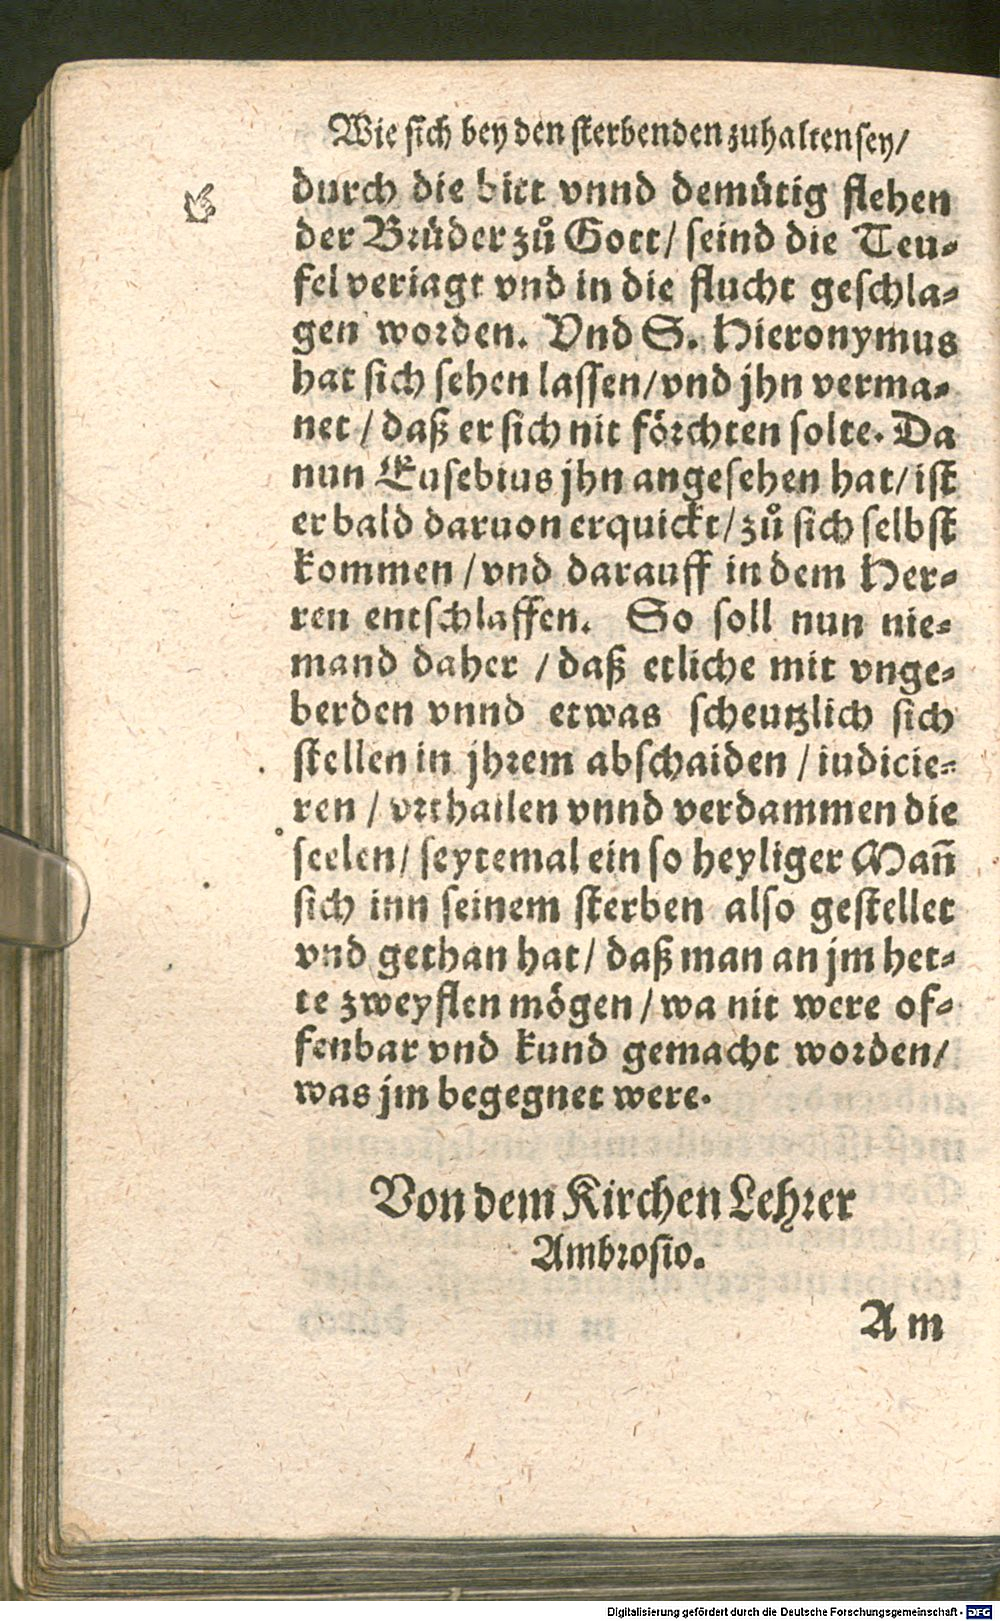 Wie sich bey den sterbenden zuhalten sey/
durch die bitt vnnd demütig flehen
der Brüder zů Gott/ seind die Teu-
fel veriagt vnd in die flucht geschla-
gen worden. Vnd S. Hieronymus
hat sich sehen lassen/ vnd jhn verma-
net/ daß er sich nit förchten solte. Da
nun Eusebius jhn angesehen hat/ ist
er bald daruon erquickt/ zů sich selbst
kommen/ vnd darauff in dem Her-
ren entschlaffen. So soll nun nie-
mand daher/ daß etliche mit vnge-
berden vnnd etwas scheutzlich sich
stellen in jhrem abschaiden/ iudicie-
ren/ vrthailen vnnd verdammen die
seelen/ seytemal ein so heyliger Mañ
sich inn seinem sterben also gestellet
vnd gethan hat/ daß man an jm het-
te zweyflen mögen/ wa nit were of-
fenbar vnd kund gemacht worden/
was jm begegnet were.
Von dem Kirchen Lehrer
Ambrosio.
Am
Digitalisierung gefördert durch die Deutsche Forschungsgemeinschaft - DFG